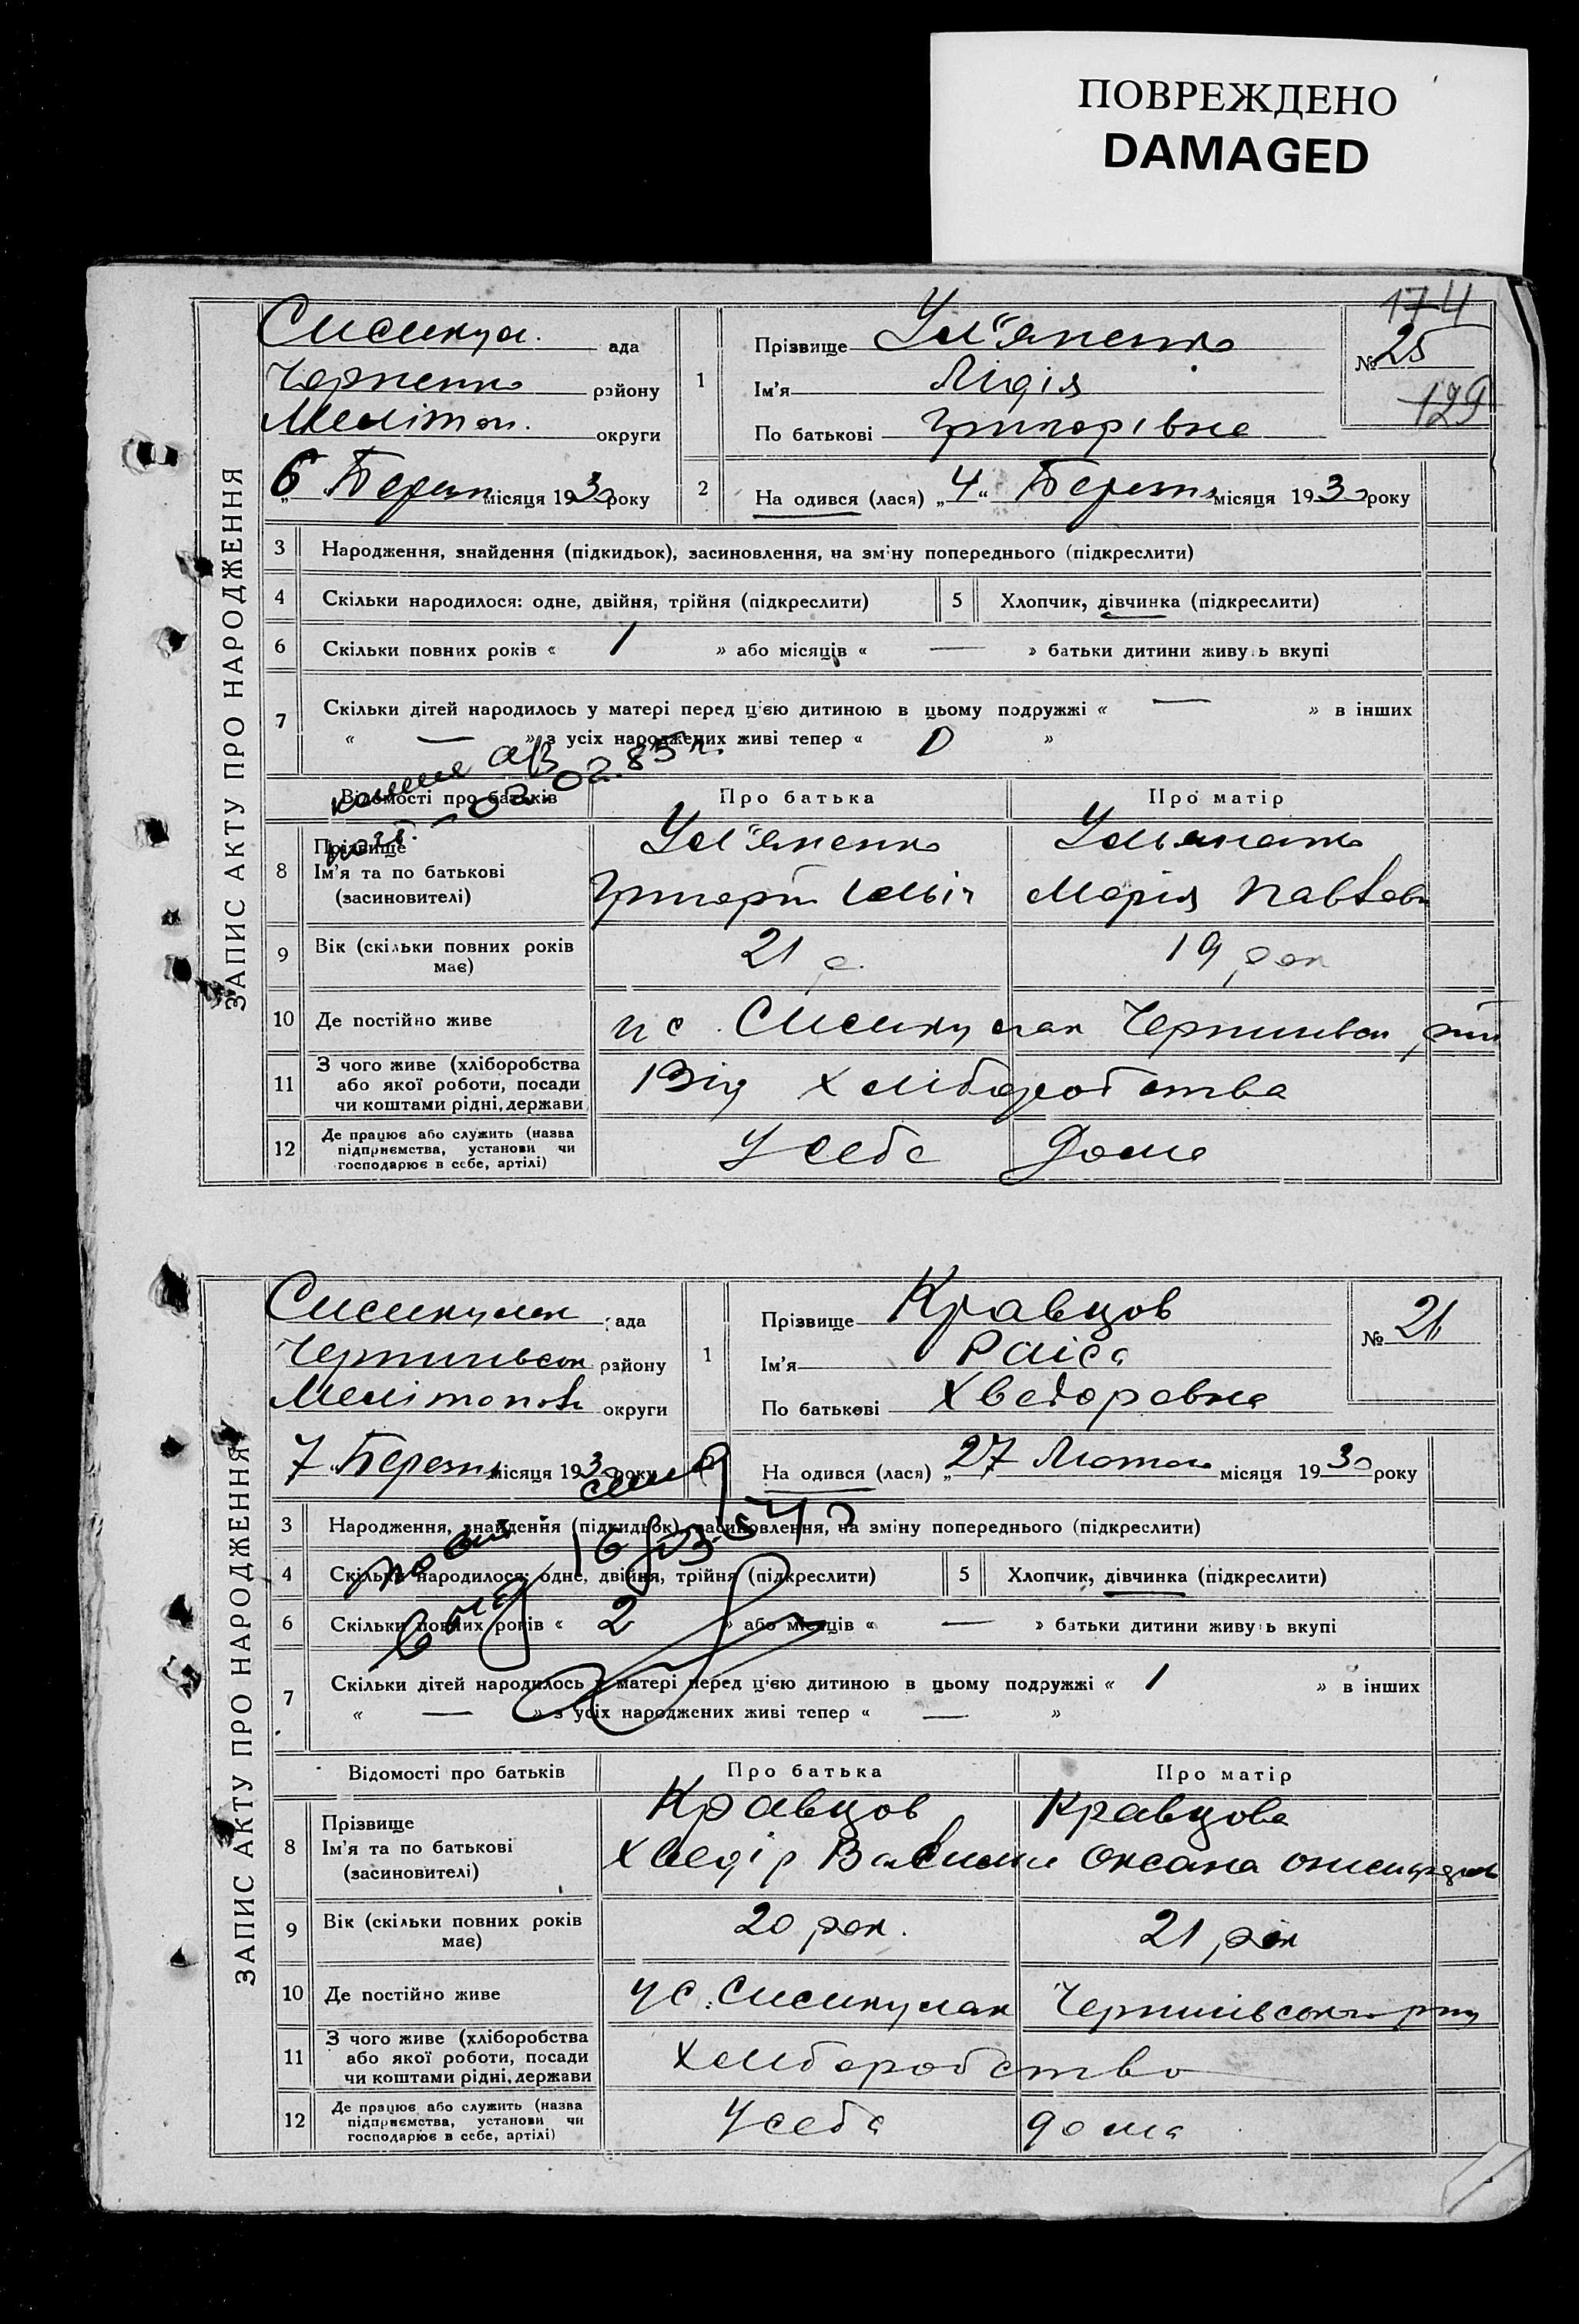 ПОВРЕЖДЕНО
DAMAGED
ЗАПИС АКТУ ПРО НАРОДЖЕННЯ
174
ада
району
Мелітоп. округи
6 місяця 1930 року
1
Прізвище
Ім'я Лідія
По батькові Григорівна
№ 25
129
2 На одився (лася) „4“ місяця 1930 року
3 Народження, знайдення (підкидьок), засиновлення, на зміну попереднього (підкреслити)
4 Скільки народилося: одне, двійня, трійня (підкреслити) 5 Хлопчик, дівчинка (підкреслити)
6 Скільки повних років « 1 » або місяців « — » батьки дитини живуть вкупі
7 Скільки дітей народилось у матері перед цією дитиною в цьому подружжі « — » в інших
« — » з усіх народжених живі тепер « 0 »
Відомості про батьків Про батька Про матір
8 Прізвище
Ім'я та по батькові
(засиновителі)
Марія
9 Вік (скільки повних років
має)
21 р. 19 рок
10 Де постійно живе
11 З чого живе (хліборобства
або якої роботи, посади
чи коштами рідні, держави
Від хліборобства
12 Де працює або служить (назва
підприємства, установи чи
господарює в себе, артілі)
У себе дома
ЗАПИС АКТУ ПРО НАРОДЖЕННЯ
ада
району
округи
7 місяця 1930 року
1
Прізвище Кравцов
Ім'я Раіса
По батькові Хведоровна
№ 26
На одився (лася) „27 Лютого місяця 1930 року
3 Народження, знайдення (підкидьок), засиновлення, на зміну попереднього (підкреслити)
4 Скільки народилося: одне, двійня, трійня (підкреслити) 5 Хлопчик, дівчинка (підкреслити)
6 Скільки повних років « 2 » або місяців « — » батьки дитини живуть вкупі
7 Скільки дітей народилось у матері перед цією дитиною в цьому подружжі « 1 » в інших
« — » з усіх народжених живі тепер « — »
Відомості про батьків Про батька Про матір
8 Прізвище
Ім'я та по батькові
(засиновителі)
Кравцов Кравцова
Хведір Оксана
9 Вік (скільки повних років
має)
20 рок. 21 рік
10 Де постійно живе
11 З чого живе (хліборобства
або якої роботи, посади
чи коштами рідні, держави
Хліборобство
12 Де працює або служить (назва
підприємства, установи чи
господарює в себе, артілі)
У себе дома